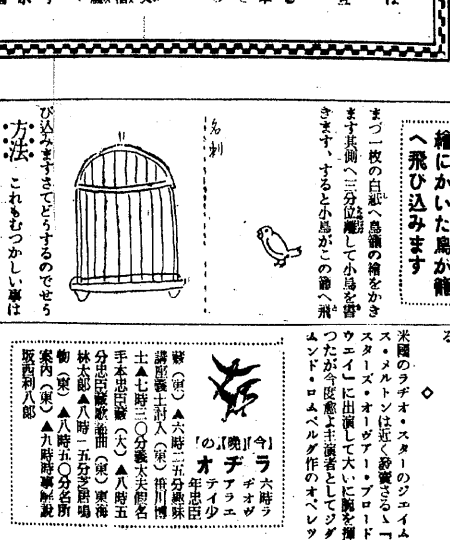 繪にかいた鳥が籠
へ飛び込みます
まづ一枚の白紙へ鳥籠の繪をかき
ます其側へ三分位離して小鳥を書
きます、すると小鳥がこの籠へ飛
名刺
び込みますさてどうするのでせう
方法
これもむつかしい事は
◇
米國のラヂオ・スターのジエイム
ス・メルトンは近く
スターズ・オーヴアー・ブロード
ウエイ」に出演して大いに腕を揮
つたが今度愈よ主演者としてジグ
ムンド・ロムベルグ作のオペレツ
【今】【晩】【の】
ラヂオ
六時ラ
ヂオヴ
アラエ
テイ少
年忠臣
藏(東)▲六時二五分趣味
講座義士討入(東)笹川博
士▲七時三〇分義太夫假名
手本忠臣藏(大)▲八時五
分忠臣藏歌謠曲(東)東海
林太郎▲八時一五分芝居鳴
物(東)▲八時五〇分名所
案内(東)▲九時時事解説
坂西利八郎